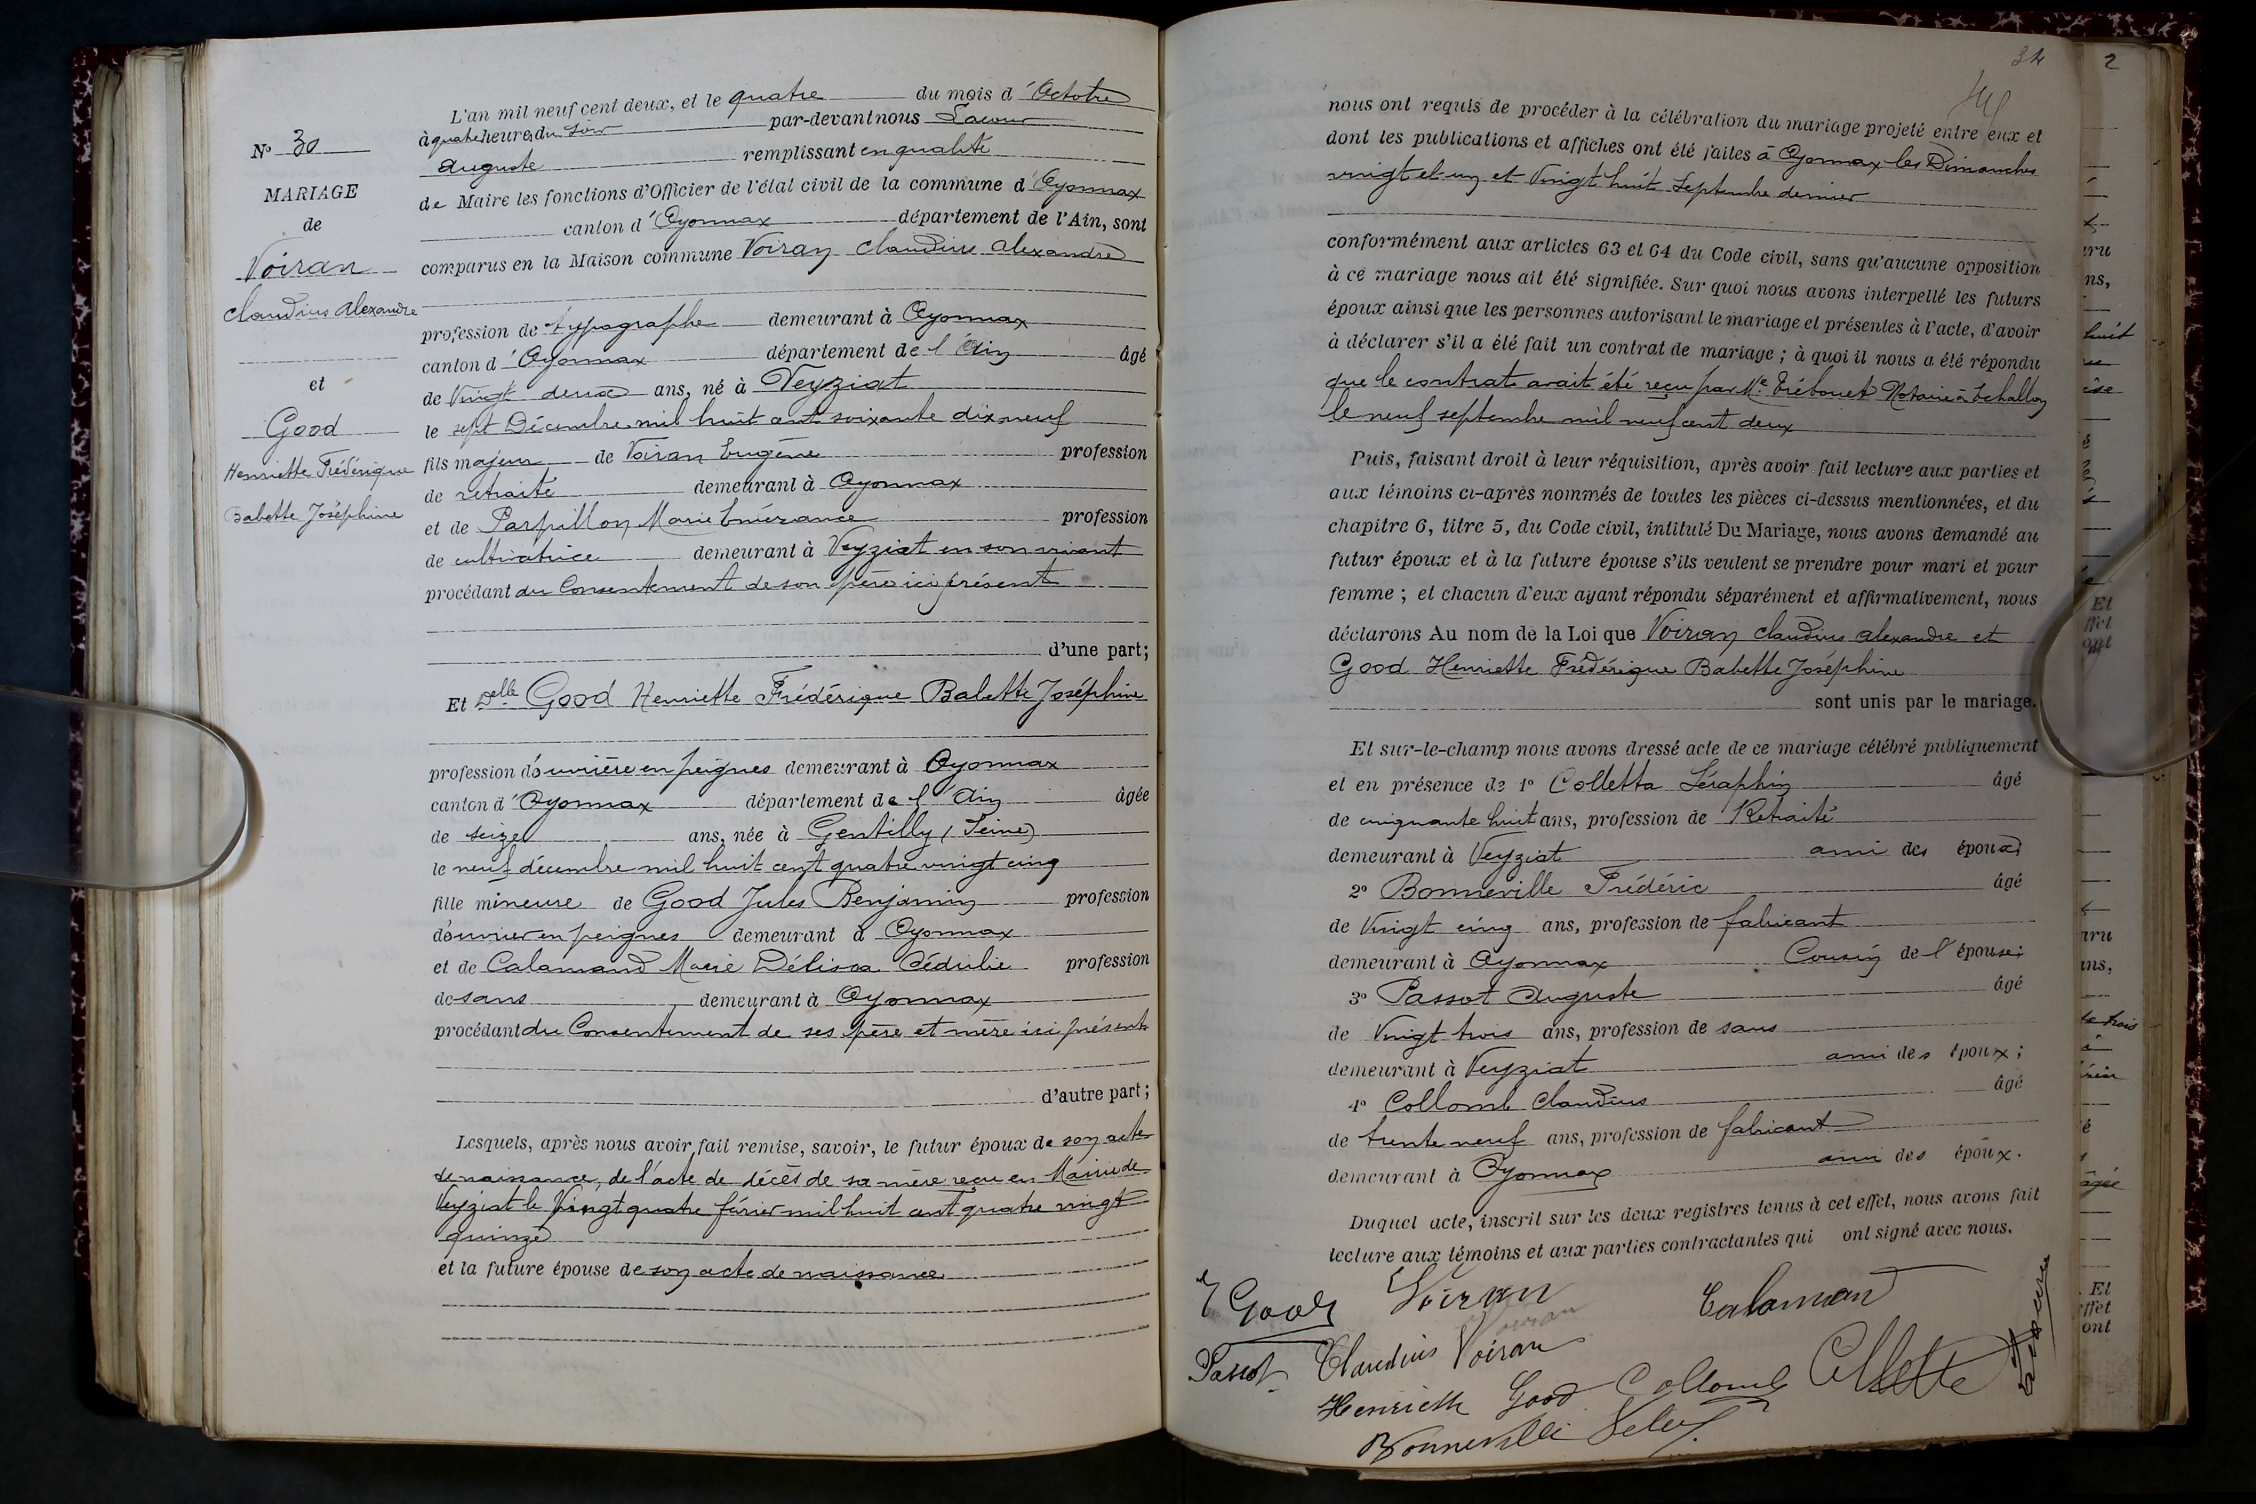 N° 30
MARIAGE
de
Voiran
Claudius Alexandre
et
Good
Henriette Frédérique
Babette Joséphine
L'an mil neuf cent deux, et le quatre du mois d'Octobre
à quatre heures du soir par-devant nous Lacour
Auguste remplissant en qualité
de Maire les fonctions d'Officier de l'état civil de la commune d'Oyonnax
canton d'Oyonnax département de l'Ain, sont
comparus en la Maison commune Voiran Claudius Alexandre
profession de typographe demeurant à Oyonnax
canton d'Oyonnax département de l'Ain âgé
de Vingt deux ans, né à Veyziat
le sept Décembre mil huit cent soixante dix neuf
fils majeur de Voiran Eugène profession
de retraité demeurant à Oyonnax
et de Parpillon Marie Emérance profession
de cultivatrice demeurant à Veyziat en son vivant
procédant du Consentement de son père ici présent
d'une part;
Et Delle Good Henriette Frédérique Babette Joséphine
profession d'ouvrière en peignes demeurant à Oyonnax
canton d'Oyonnax département de l'Ain âgée
de seize ans, née à Gentilly (Seine)
le neuf décembre mil huit cent quatre vingt cinq
fille mineure de Good Jules Benjamin profession
d'ouvrier en peignes demeurant à Oyonnax
et de Calamand Marie Délissa Cédulie profession
de sans demeurant à Oyonnax
procédant du Consentement de ses père et mère ici présents
d'autre part;
Lesquels, après nous avoir fait remise, savoir, le futur époux de son acte
de naissance, de l'acte de décès de sa mère reçu en Mairie de
Veyziat le Vingt quatre février mil huit cent quatre vingt
quinze
et la future épouse de son acte de naissance
34
nous ont requis de procéder à la célébration du mariage projeté entre eux et
dont les publications et affiches ont été faites à Oyonnax les Dimanches
vingt et un et Vingt huit Septembre dernier
conformément aux articles 63 et 64 du Code civil, sans qu'aucune opposition
à ce mariage nous ait été signifiée. Sur quoi nous avons interpellé les futurs
époux ainsi que les personnes autorisant le mariage et présentes à l'acte, d'avoir
à déclarer s'il a été fait un contrat de mariage ; à quoi il nous a été répondu
que le contrat avait été reçu par Me Trébouet Notaire à Echallon
le neuf septembre mil neuf cent deux
Puis, faisant droit à leur réquisition, après avoir fait lecture aux parties et
aux témoins ci-après nommés de toutes les pièces ci-dessus mentionnées, et du
chapitre 6, titre 5, du Code civil, intitulé Du Mariage, nous avons demandé au
futur époux et à la future épouse s'ils veulent se prendre pour mari et pour
femme ; et chacun d'eux ayant répondu séparément et affirmativement, nous
déclarons Au nom de la Loi que Voiran Claudius Alexandre et
Good Henriette Frédérique Babette Joséphine
sont unis par le mariage.
Et sur-le-champ nous avons dressé acte de ce mariage célébré publiquement
et en présence de 1° Colletta Séraphin âgé
de cinquante huit ans, profession de Retraité
demeurant à Veyziat ami des époux
2° Bonneville Frédéric âgé
de Vingt cinq ans, profession de fabricant
demeurant à Oyonnax Cousin de l'épouse;
3° Passot Auguste âgé
de Vingt trois ans, profession de sans
demeurant à Veyziat ami des époux ;
4° Collomb Claudius âgé
de trente neuf ans, profession de fabricant
demeurant à Oyonnax ami des époux.
Duquel acte, inscrit sur les deux registres tenus à cet effet, nous avons fait
lecture aux témoins et aux parties contractantes qui ont signé avec nous.
Good Voiran Calamand
Passot Claudius Voiran
Henriette Good Collomb Colletta
Bonneville
2